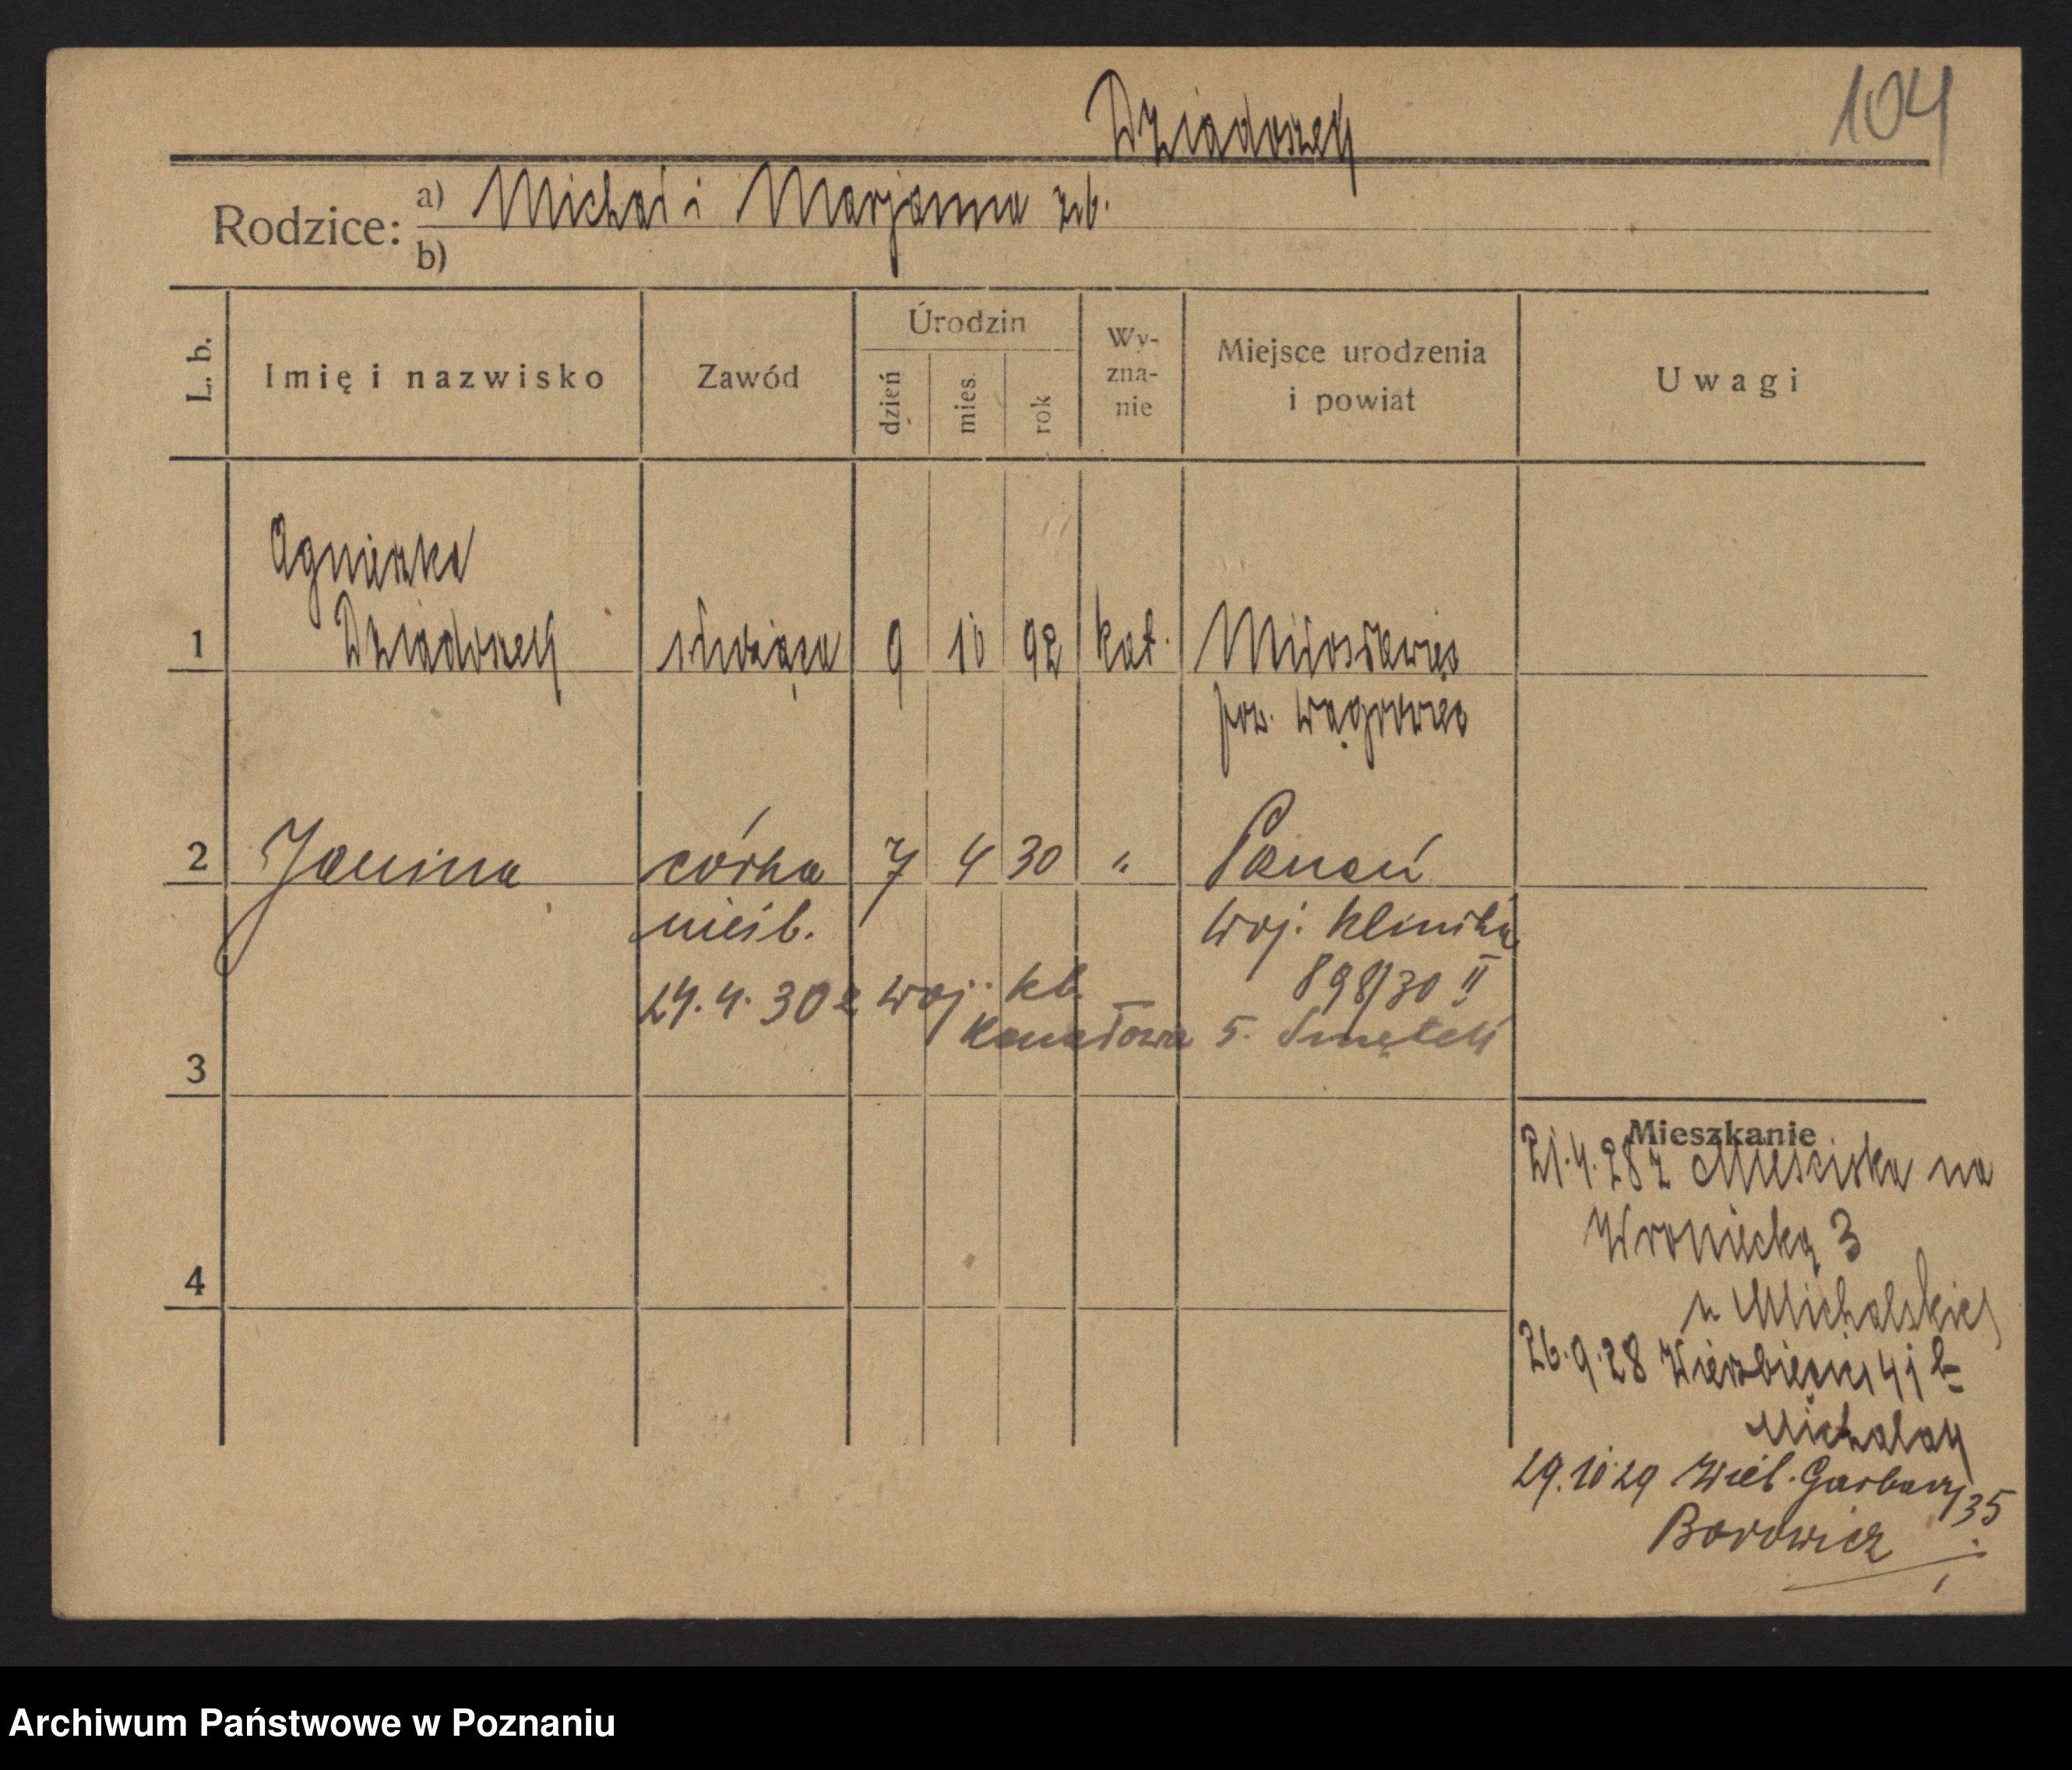 Dziadosz
104
Rodzice: a) Michał i Marjanna
b)
L. b.
Imię i nazwisko
Zawód
Úrodzin
dzień
mies.
rok
Wy-
zna-
nie
Miejsce urodzenia
i powiat
Uwagi
Agnieszka
1 służąca 9 10 92 kat. Miłosławice
pow. Wągrowiec
2 Janina córka 7 4 30 " Poznań
nieśl. woj. klinika
898/30 II
24.4.30 z woj. kl.
Kanałowa 5.
3
4
Mieszkanie
21.4.28 z Mieściska na
Wroniecką 3
u Michalskiej
26.9.28 Wierzbięcice 41 b
29.10 29 Wiel. Garbary 35
Borowicz
Archiwum Państwowe w Poznaniu